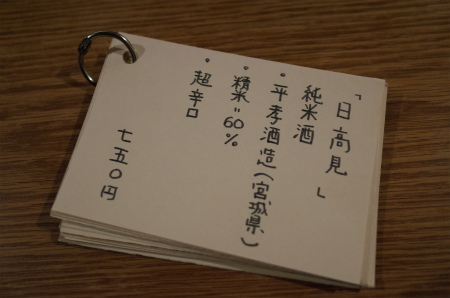 「日高見」
純米酒
・平孝酒造(宮城県)
・精米=60%
・超辛口
七五〇円